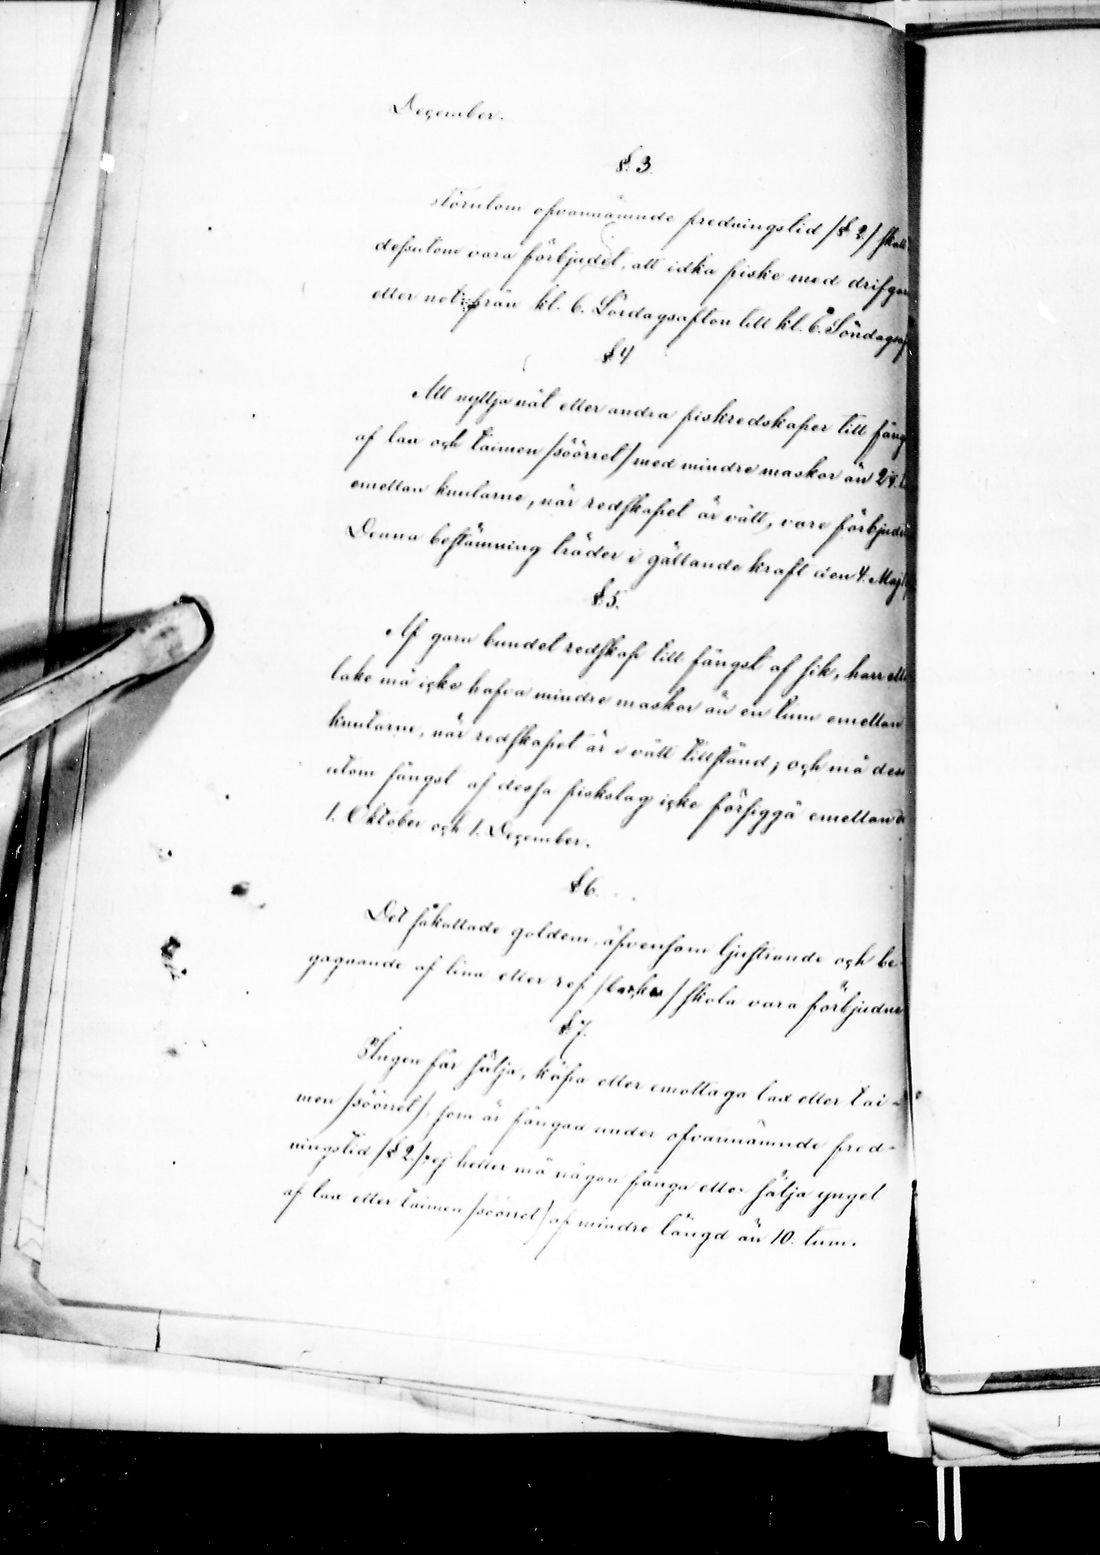 December.
§. 3.
Förutom ofvannämnde fredningstid /§ 2./ skall
desutom vara förbjudet, att idka fiske med drifgarn
eller not från kl. 6. Lördagsafton till kl. 6. Söndagsaf
§ 4
Att nyttja nät eller andra fiskredskaper till fång
af lax och taimen /söörrel/ med mindre maskor än 2¼
emellan knutarne, när redskapet är vått, vare förbjudet
Denna bestämning träder i gällande kraft den 4. Maj
§ 5.
Af garn bundet redskap till fångst af sik, harr eller
lake må icke hafva mindre maskor än en tum emellan
knutarne, när redskapet är i vått tillstånd; och må dess
utom fångst af dessa fiskslag icke försiggå emellan
1. Oktober och 1. December.
§ 6.
Det såkallade goldem, äfvensom ljustrande och be-
gagnande af lina eller ref /skola vara förbjudne
§ 7.
Ingen får sälja, köpa eller emottaga lax eller tai-
men /söörrel/, som är fångad under ofvannämnde fred-
ningstid /§ 2./; ej heller må någon fånga eller sälja yngel
af lax eller taimen /söörrel/ af mindre längd än 10. tum.